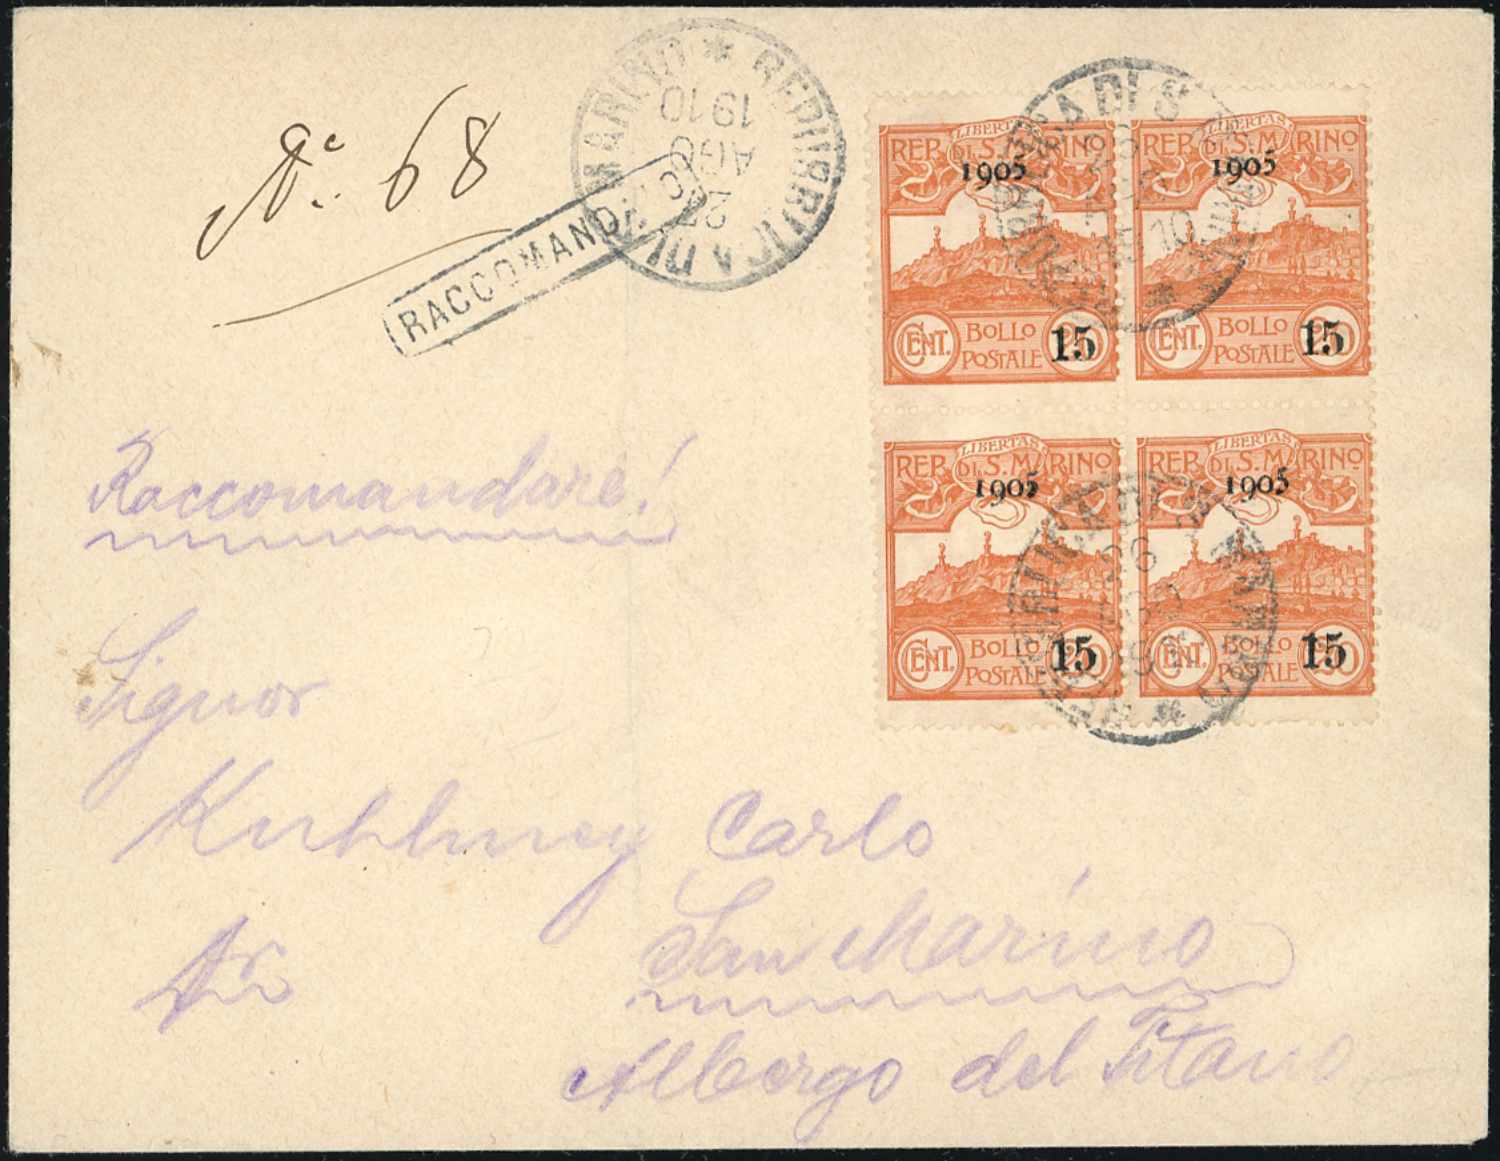 Nº. 68
RACCOMANDATO
REPUBBLICA DI S. MARINO *
27
AGO
1910
LIBERTAS
REP. DI S. MARINO
1905
CENT. BOLLO POSTALE 20 15
LIBERTAS
REP. DI S. MARINO
1905
CENT. BOLLO POSTALE 20 15
LIBERTAS
REP. DI S. MARINO
1905
CENT. BOLLO POSTALE 20 15
LIBERTAS
REP. DI S. MARINO
1905
CENT. BOLLO POSTALE 20 15
Raccomandare!
Signor
Kuhlmey Carlo
San Marino
Albergo del Titano